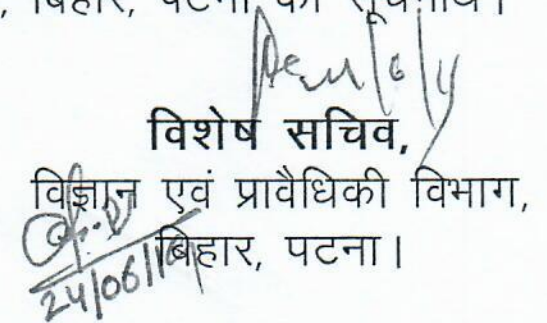 , बिहार, पटना को सूचनार्थ।
विशेष सचिव,
विज्ञान एवं प्रावैधिकी विभाग,
बिहार, पटना।
24/06/14